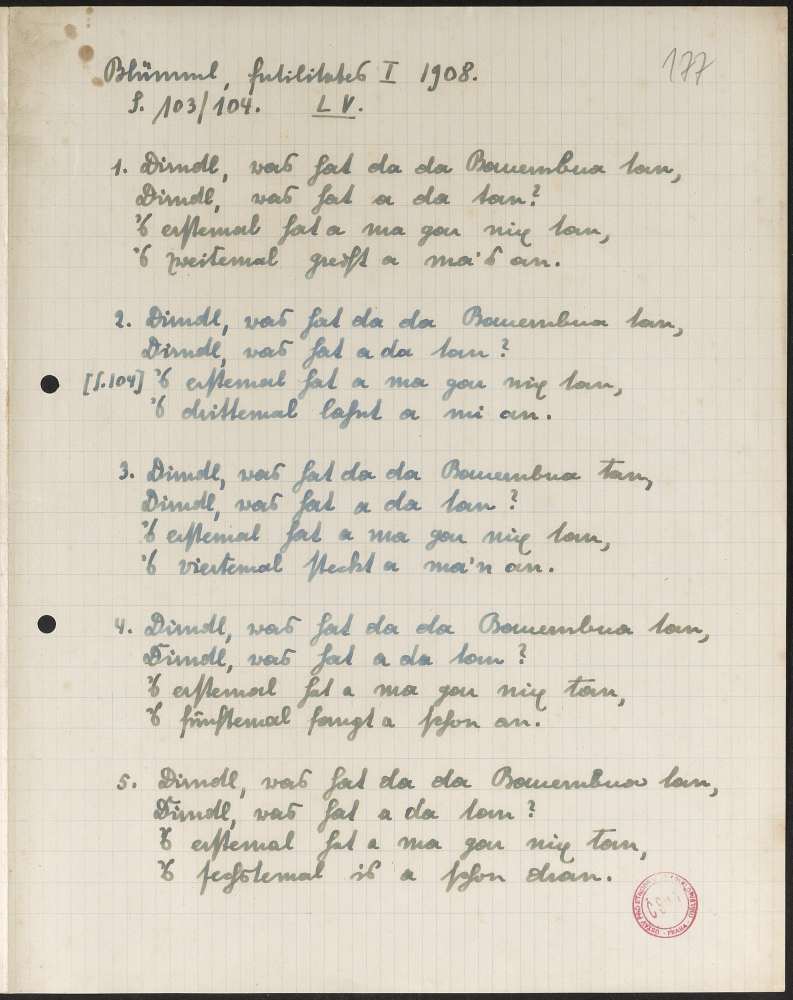 177
Blümml, futilitates I 1908.
S. 103/104. LV.
1. Dirndl, was hat da da Bauernbua tan,
Dirndl, was hat a da tan?
's erstemal hat a ma gar nix tan,
's zweitemal greift a ma's an.
2. Dirndl, was hat da da Bauernbua tan,
Dirndl, was hat a da tan?
[S.104] 's erstemal hat a ma gar nix tan,
's drittemal lahnt a mi an.
3. Dirndl, was hat da da Bauernbua tan,
Dirndl, was hat a da tan?
's erstemal hat a ma gar nix tan,
's viertemal steckt a ma'n an.
4. Dirndl, was hat da da Bauernbua tan,
Dirndl, was hat a da tan?
's erstemal hat a ma gar nix tan,
's fünftemal fangt a schon an.
5. Dirndl, was hat da da Bauernbua tan,
Dirndl, was hat a da tan?
's erstemal hat a ma gar nix tan,
's sechstemal is a schon dran.
ČSAV
PRAHA